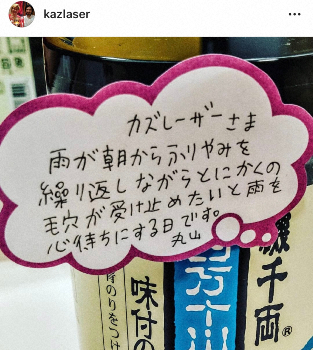 kazlaser
カズレーザーさま
雨が朝からふりやみを
繰り返しながらとにかくの
毛穴が受け止めたいと雨を
心待ちにする日です。
丸山
磯千両®
四万十川
味付の
のりをつけ